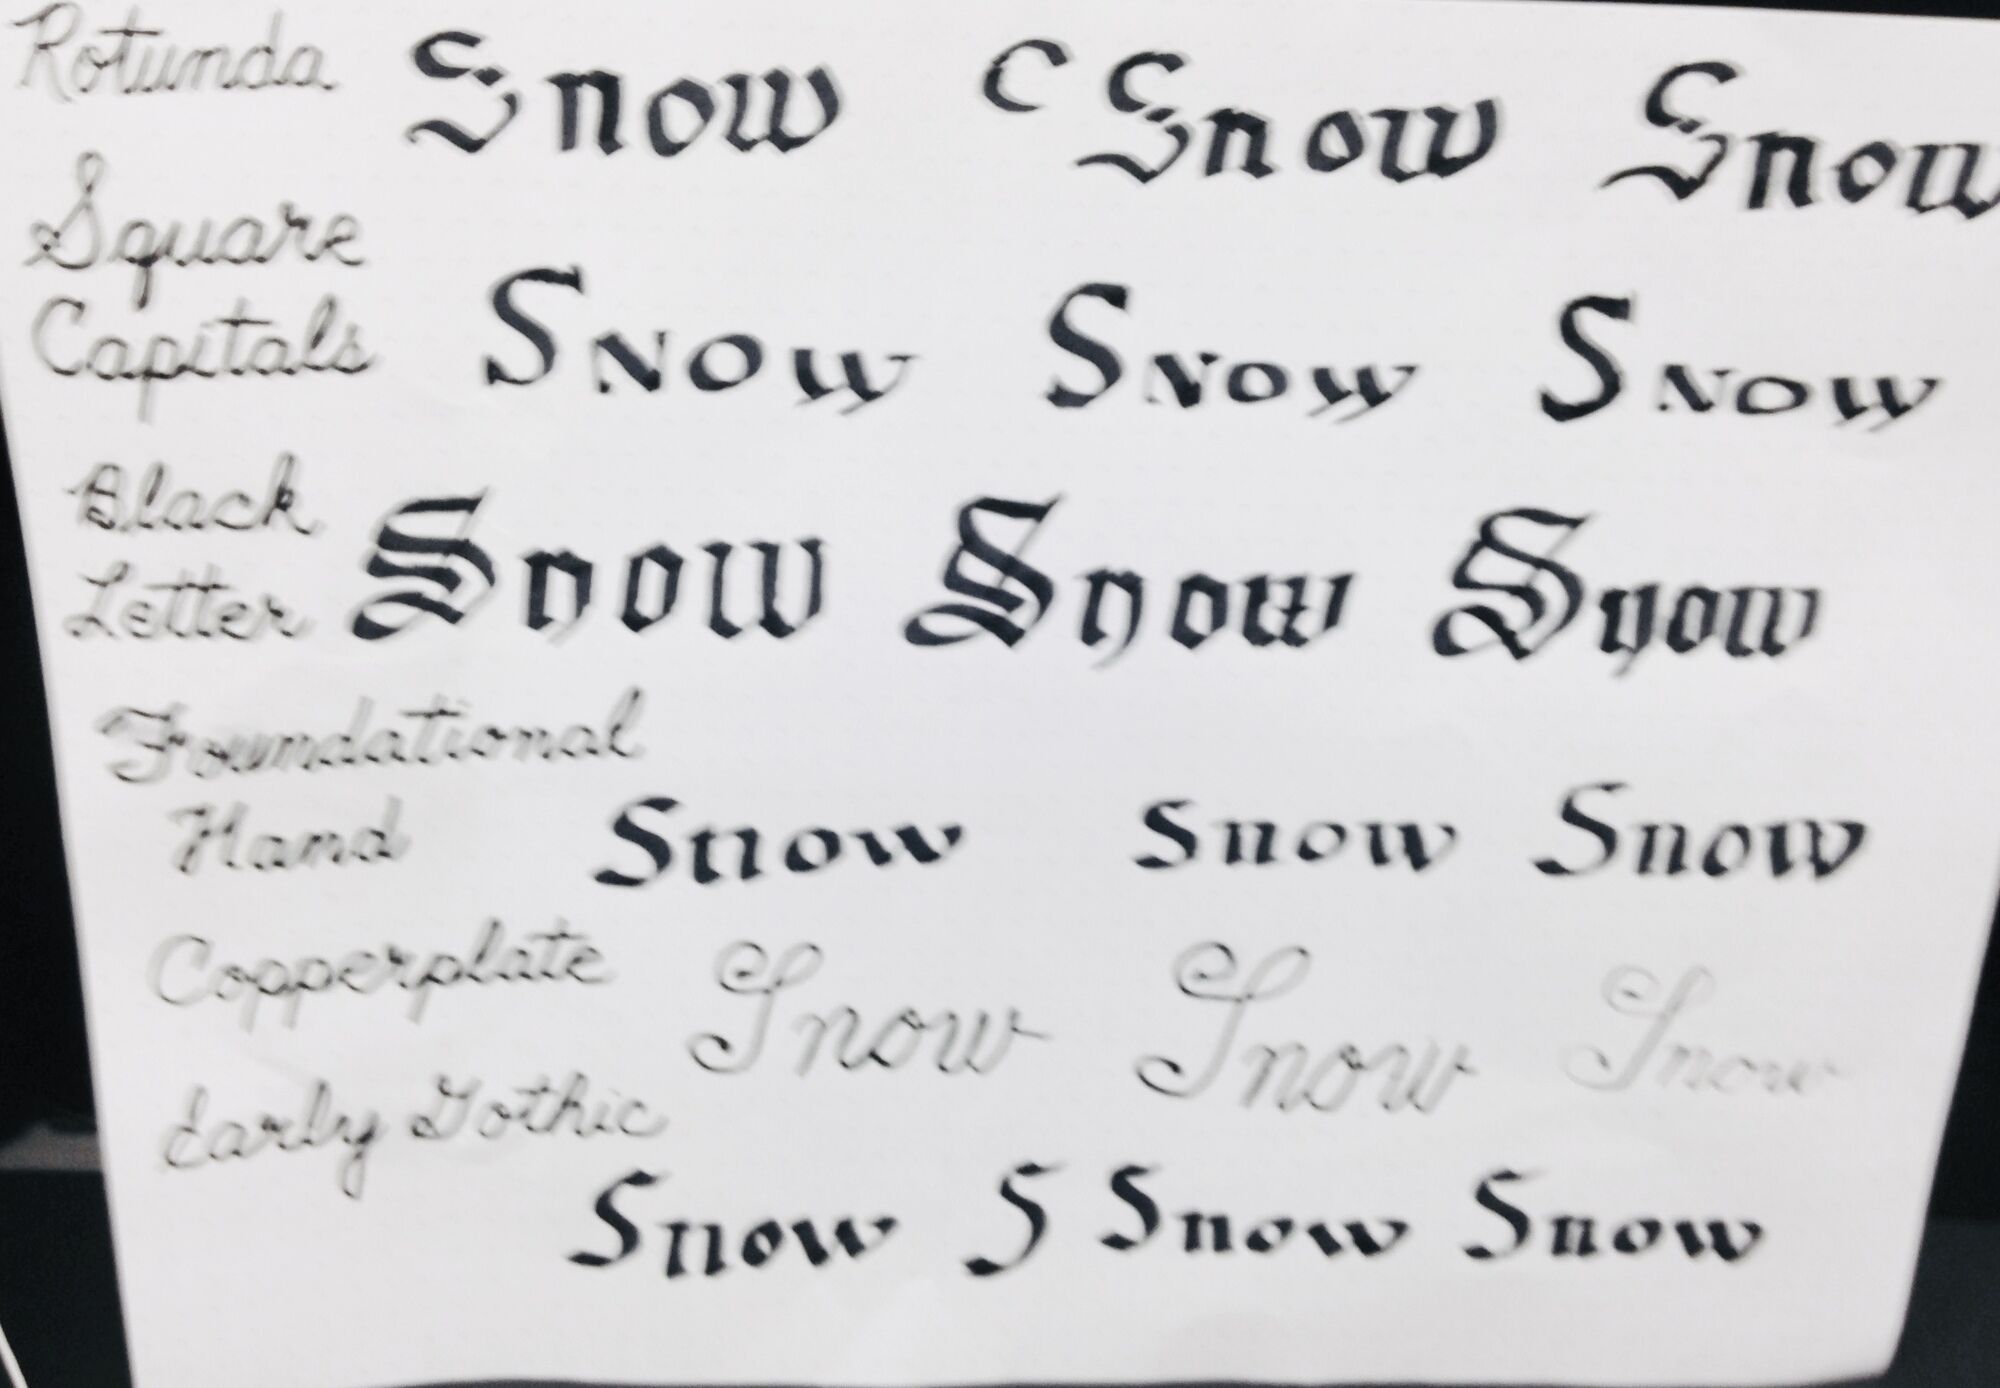 Rotunda Snow C Snow Snow
Square
Capitals Snow Snow Snow
Black
Letter Snow Snow Snow
Foundational
Hand Snow Snow Snow
Copperplate Snow Snow Snow
Early Gothic
Snow S Snow Snow